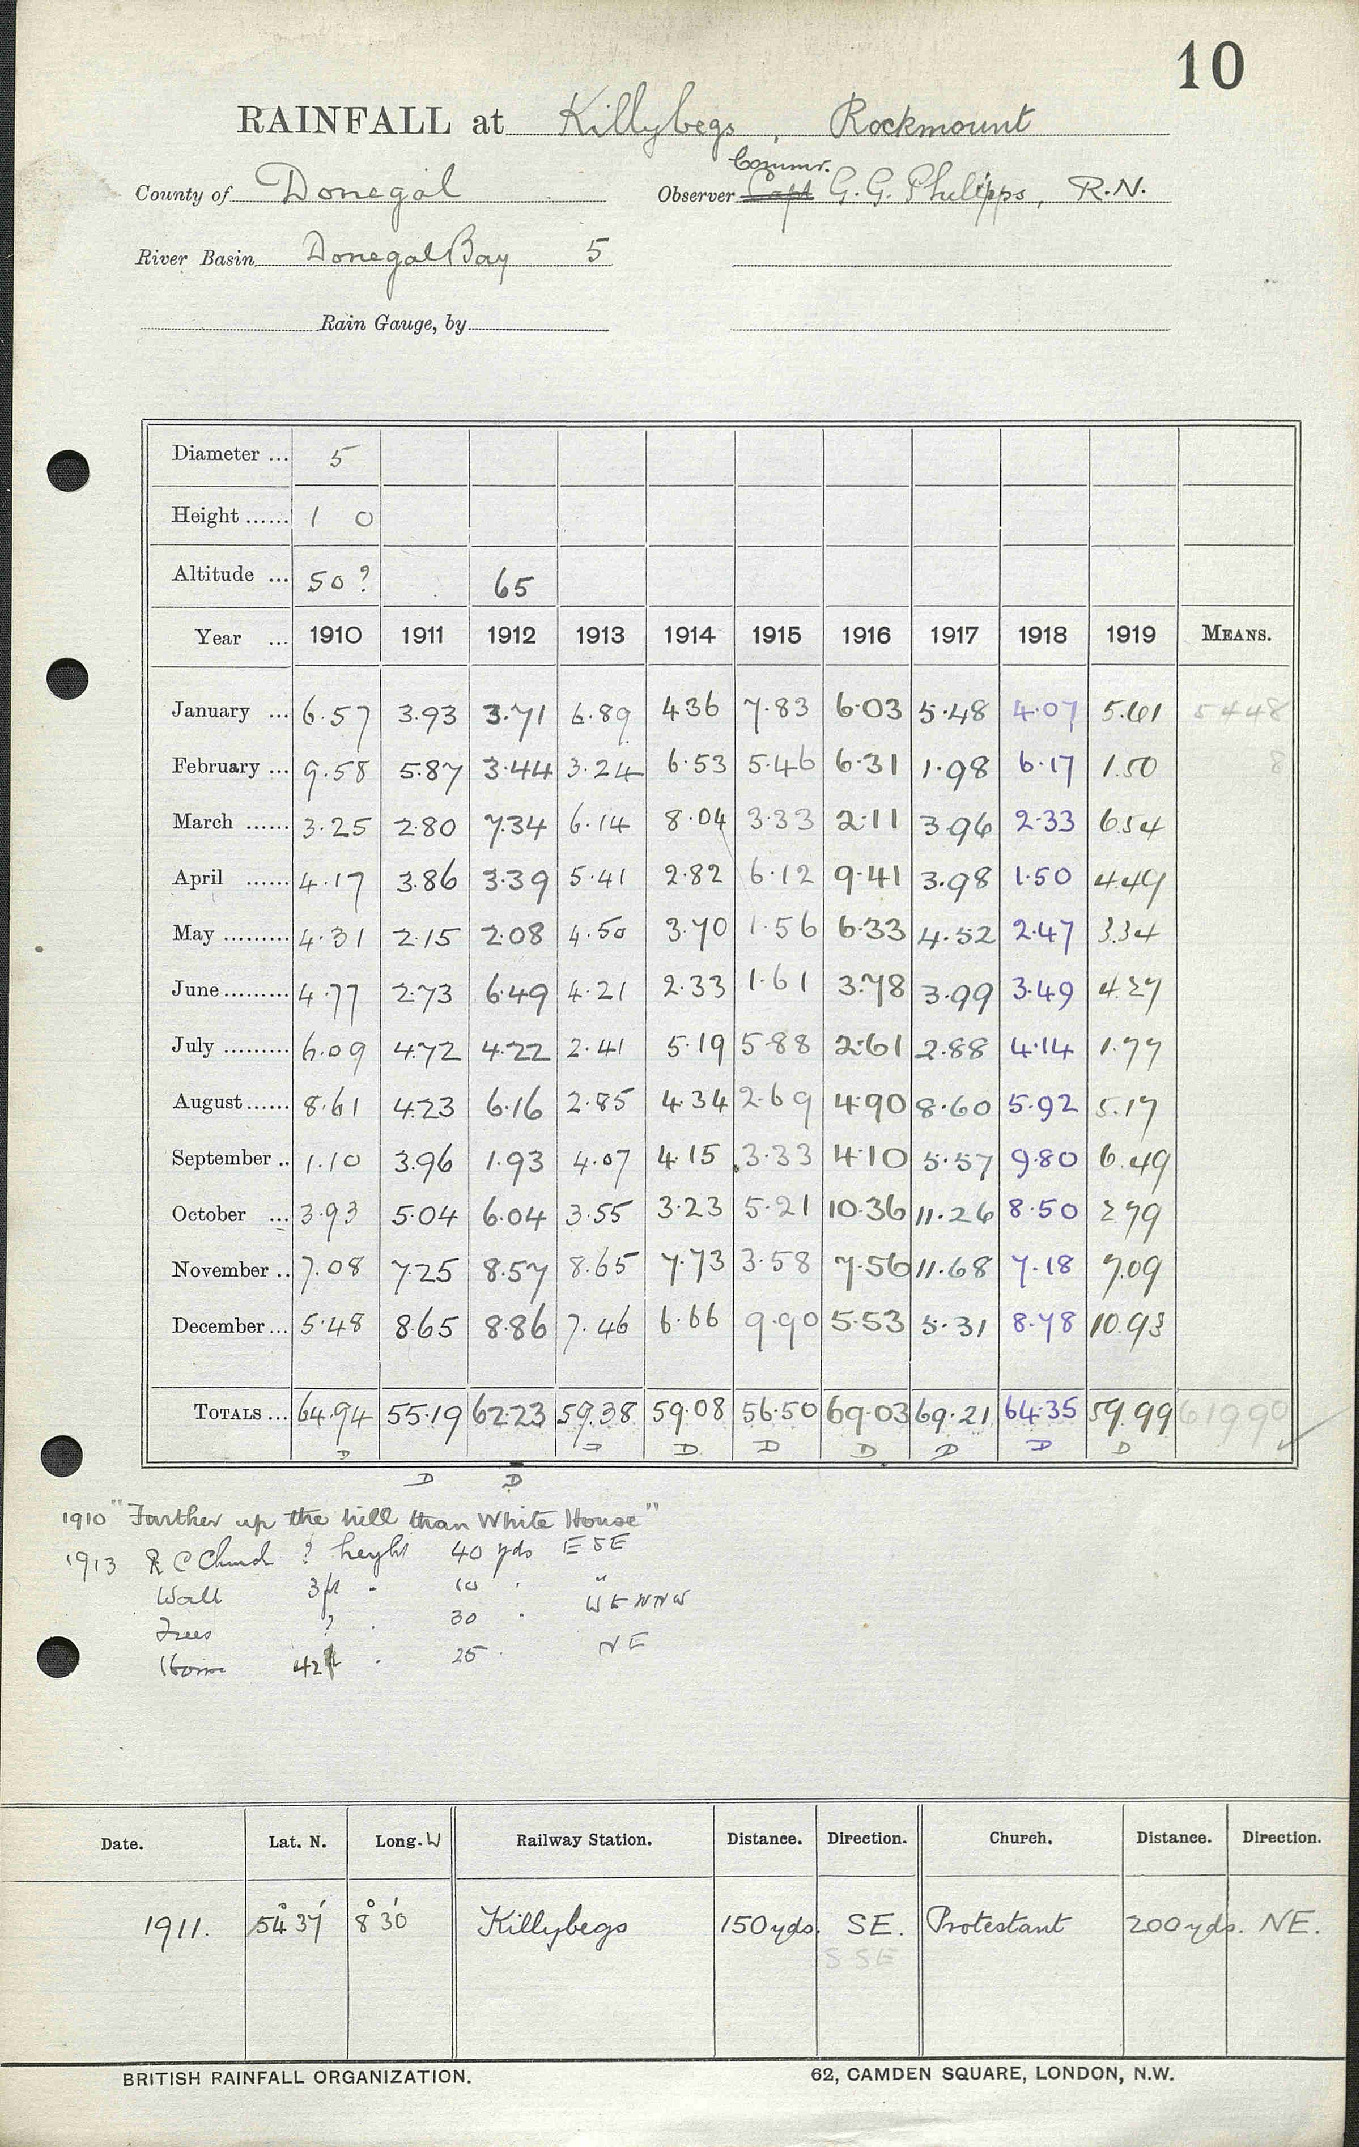 10
RAINFALL at Killybegs, Rockmount
Commr.
County of Donegal Observer Capt G. G. Philipps, R.N.
River Basin Donegal Bay 5
Rain Gauge, by
Diameter ... 5
Height ...... 1 0
Altitude ... 50? 65
Year ... 1910 1911 1912 1913 1914 1915 1916 1917 1918 1919 MEANS.
January ... 6.57 3.93 3.71 6.89 4.36 7.83 6.03 5.48 4.07 5.61 5448
February ... 9.58 5.87 3.44 3.24 6.53 5.46 6.31 1.98 6.17 1.50 8
March ...... 3.25 2.80 7.34 6.14 8.04 3.33 2.11 3.96 2.33 6.54
April ...... 4.17 3.86 3.39 5.41 2.82 6.12 9.41 3.98 1.50 4.49
May ......... 4.31 2.15 2.08 4.50 3.70 1.56 6.33 4.52 2.47 3.34
June ......... 4.77 2.73 6.49 4.21 2.33 1.61 3.78 3.99 3.49 4.27
July ......... 6.09 4.72 4.22 2.41 5.19 5.88 2.61 2.88 4.14 1.77
August ...... 8.61 4.23 6.16 2.85 4.34 2.69 4.90 8.60 5.92 5.17
September .. 1.10 3.96 1.93 4.07 4.15 3.33 4.10 5.57 9.80 6.49
October ... 3.93 5.04 6.04 3.55 3.23 5.21 10.36 11.26 8.50 2.79
November .. 7.08 7.25 8.57 8.65 7.73 3.58 7.56 11.68 7.18 7.09
December ... 5.48 8.65 8.86 7.46 6.66 9.90 5.53 5.31 8.78 10.93
TOTALS ... 64.94 55.19 62.23 59.38 59.08 56.50 69.03 69.21 64.35 59.99 61990
D D D D D D D D
D D
1910 "Farther up the hill than White House"
1913 R C Church ? height 40 yds ESE
Wall 3ft " 10 " "
Trees ? " 30 " W & WNW
House 42ft " 25 " NE
Date. Lat. N. Long. W Railway Station. Distance. Direction. Church. Distance. Direction.
1911. 54° 37' 8° 30' Killybegs 150 yds. SE. Protestant 200 yds. NE.
SSE
BRITISH RAINFALL ORGANIZATION. 62, CAMDEN SQUARE, LONDON, N.W.